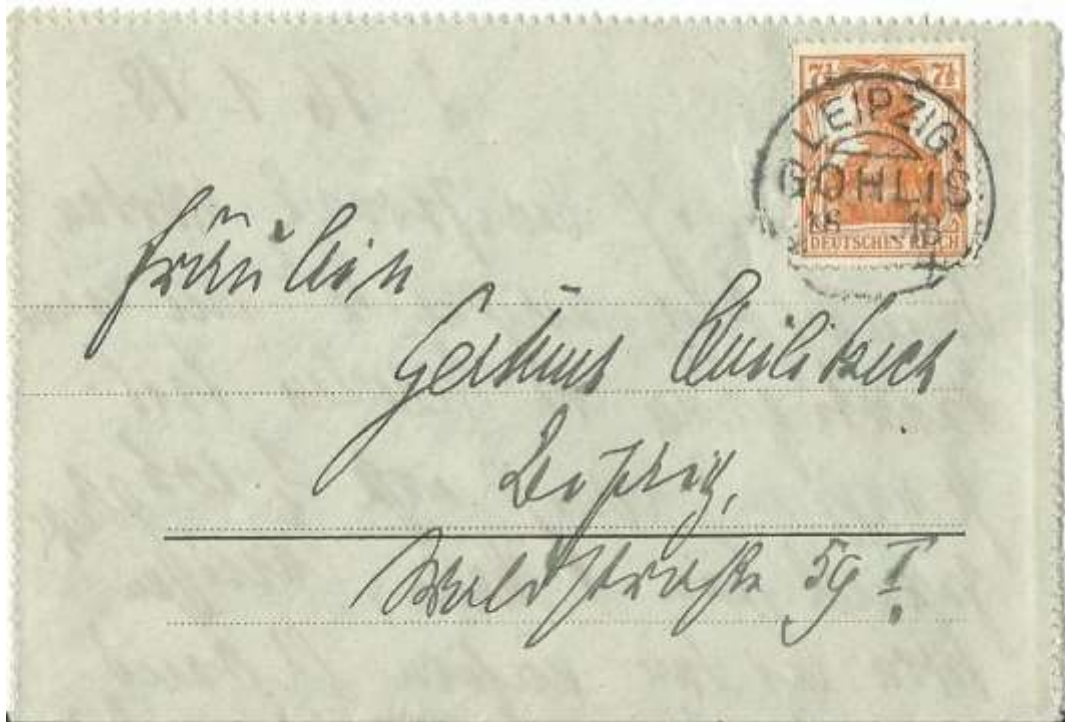 7½ 7½
LEIPZIG-
GOHLIS.
18
DEUTSCHES REICH
Fräulein
Gertrud
Leipzig,
Waldstraße 59 I.